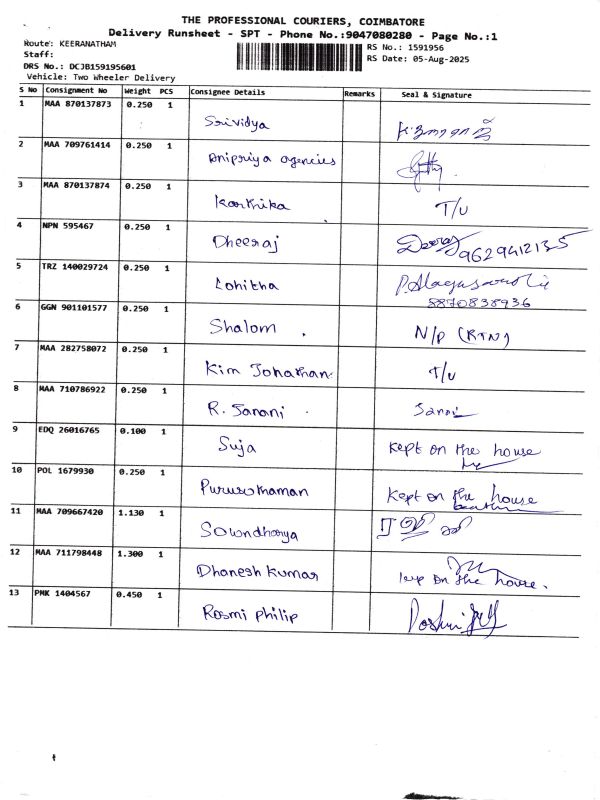 THE PROFESSIONAL COURIERS, COIMBATORE
Delivery Runsheet - SPT - Phone No.:9047080280 - Page No.:1
Route: KEERANATHAM
RS No.: 1591956
Staff:
RS Date: 05-Aug-2025
DRS No.: DCJB159195601
Vehicle: Two Wheeler Delivery
S No Consignment No Weight PCS Consignee Details Remarks Seal & Signature
1 MAA 870137873 0.250 1 Srividya
2 MAA 709761414 0.250 1 Dnipriya agencies
3 MAA 870137874 0.250 1 Karthika T/U
4 NPN 595467 0.250 1 Dheeraj 9629412135
5 TRZ 140029724 0.250 1 Lohitha
8870838936
6 GGN 901101577 0.250 1 Shalom N/P (RTN)
7 MAA 282758072 0.250 1 Kim Jonathan T/U
8 MAA 710786922 0.250 1 R. Janani
9 EDQ 26016765 0.100 1 Suja Kept on the house
10 POL 1679930 0.250 1 Purusothaman Kept on the house
11 MAA 709667420 1.130 1 Sowndharya
12 MAA 711798448 1.300 1 Dhanesh Kumar on the house.
13 PMK 1404567 0.450 1 Rosmi Philip